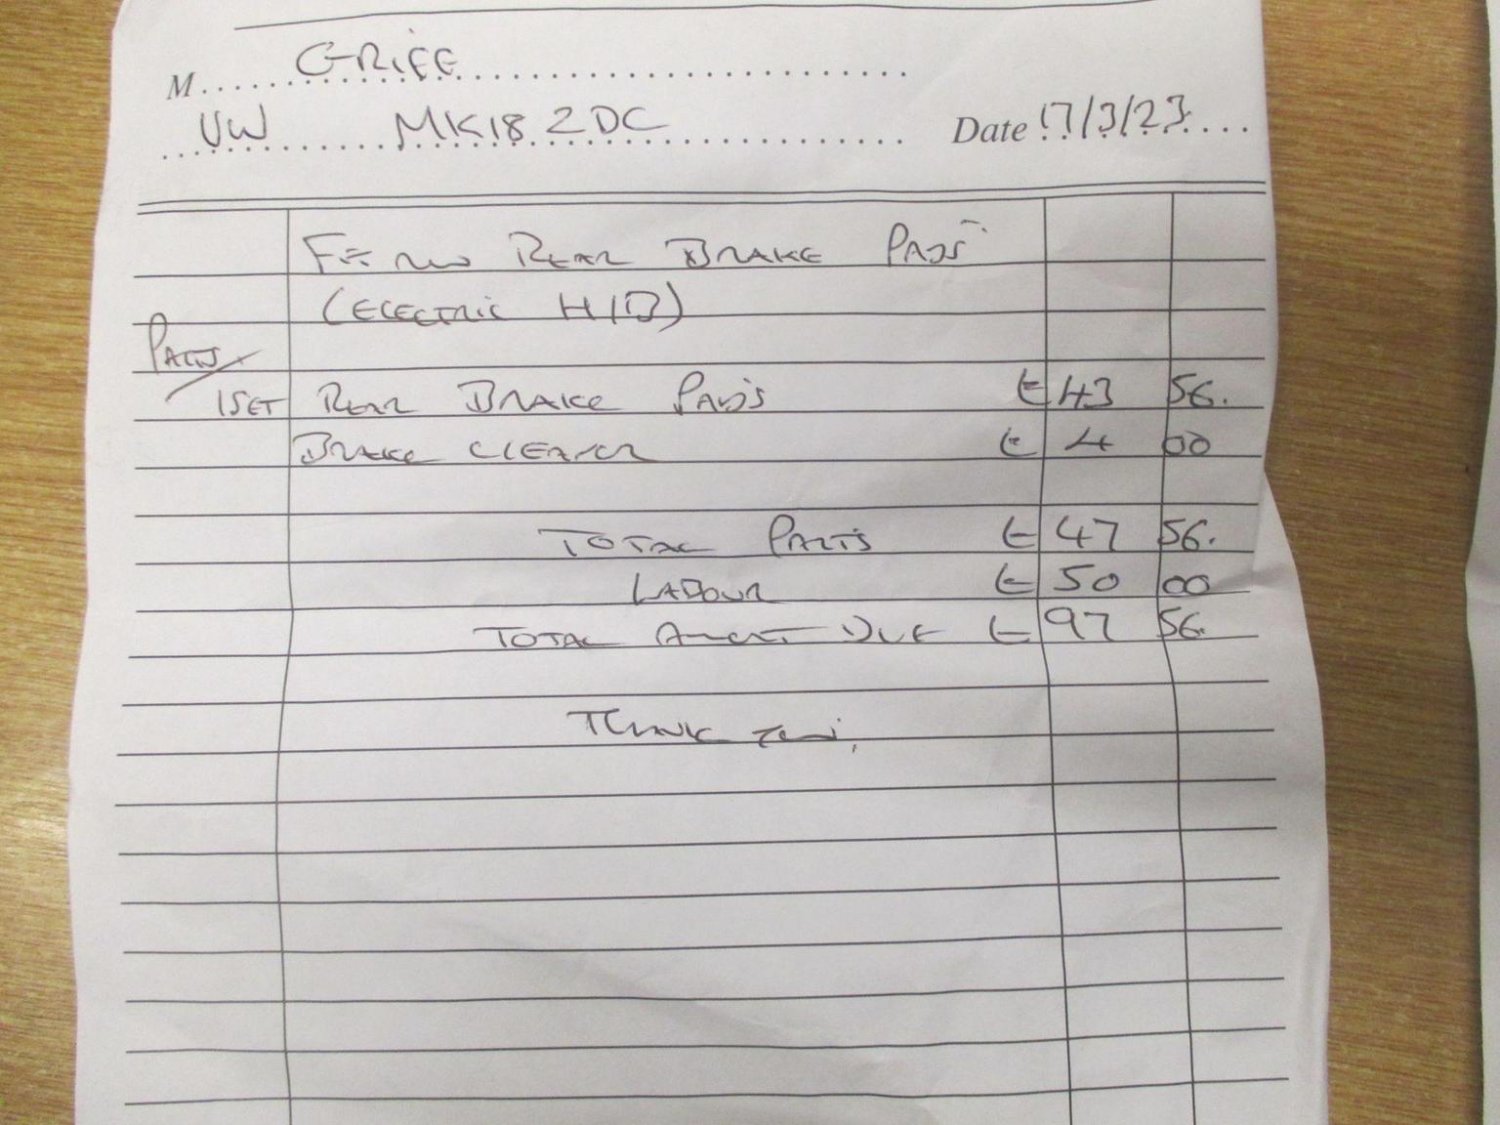 M GRIFF
VW MK18 ZDC Date 17/3/23
Fit new Rear Brake Pads
(Electric H/B)
Parts/
1 SET Rear Brake Pads £ 43 56.
Brake Cleaner £ 4 00
Total Parts £ 47 56.
Labour £ 50 00
Total Amount Due £ 97 56.
Thank you,